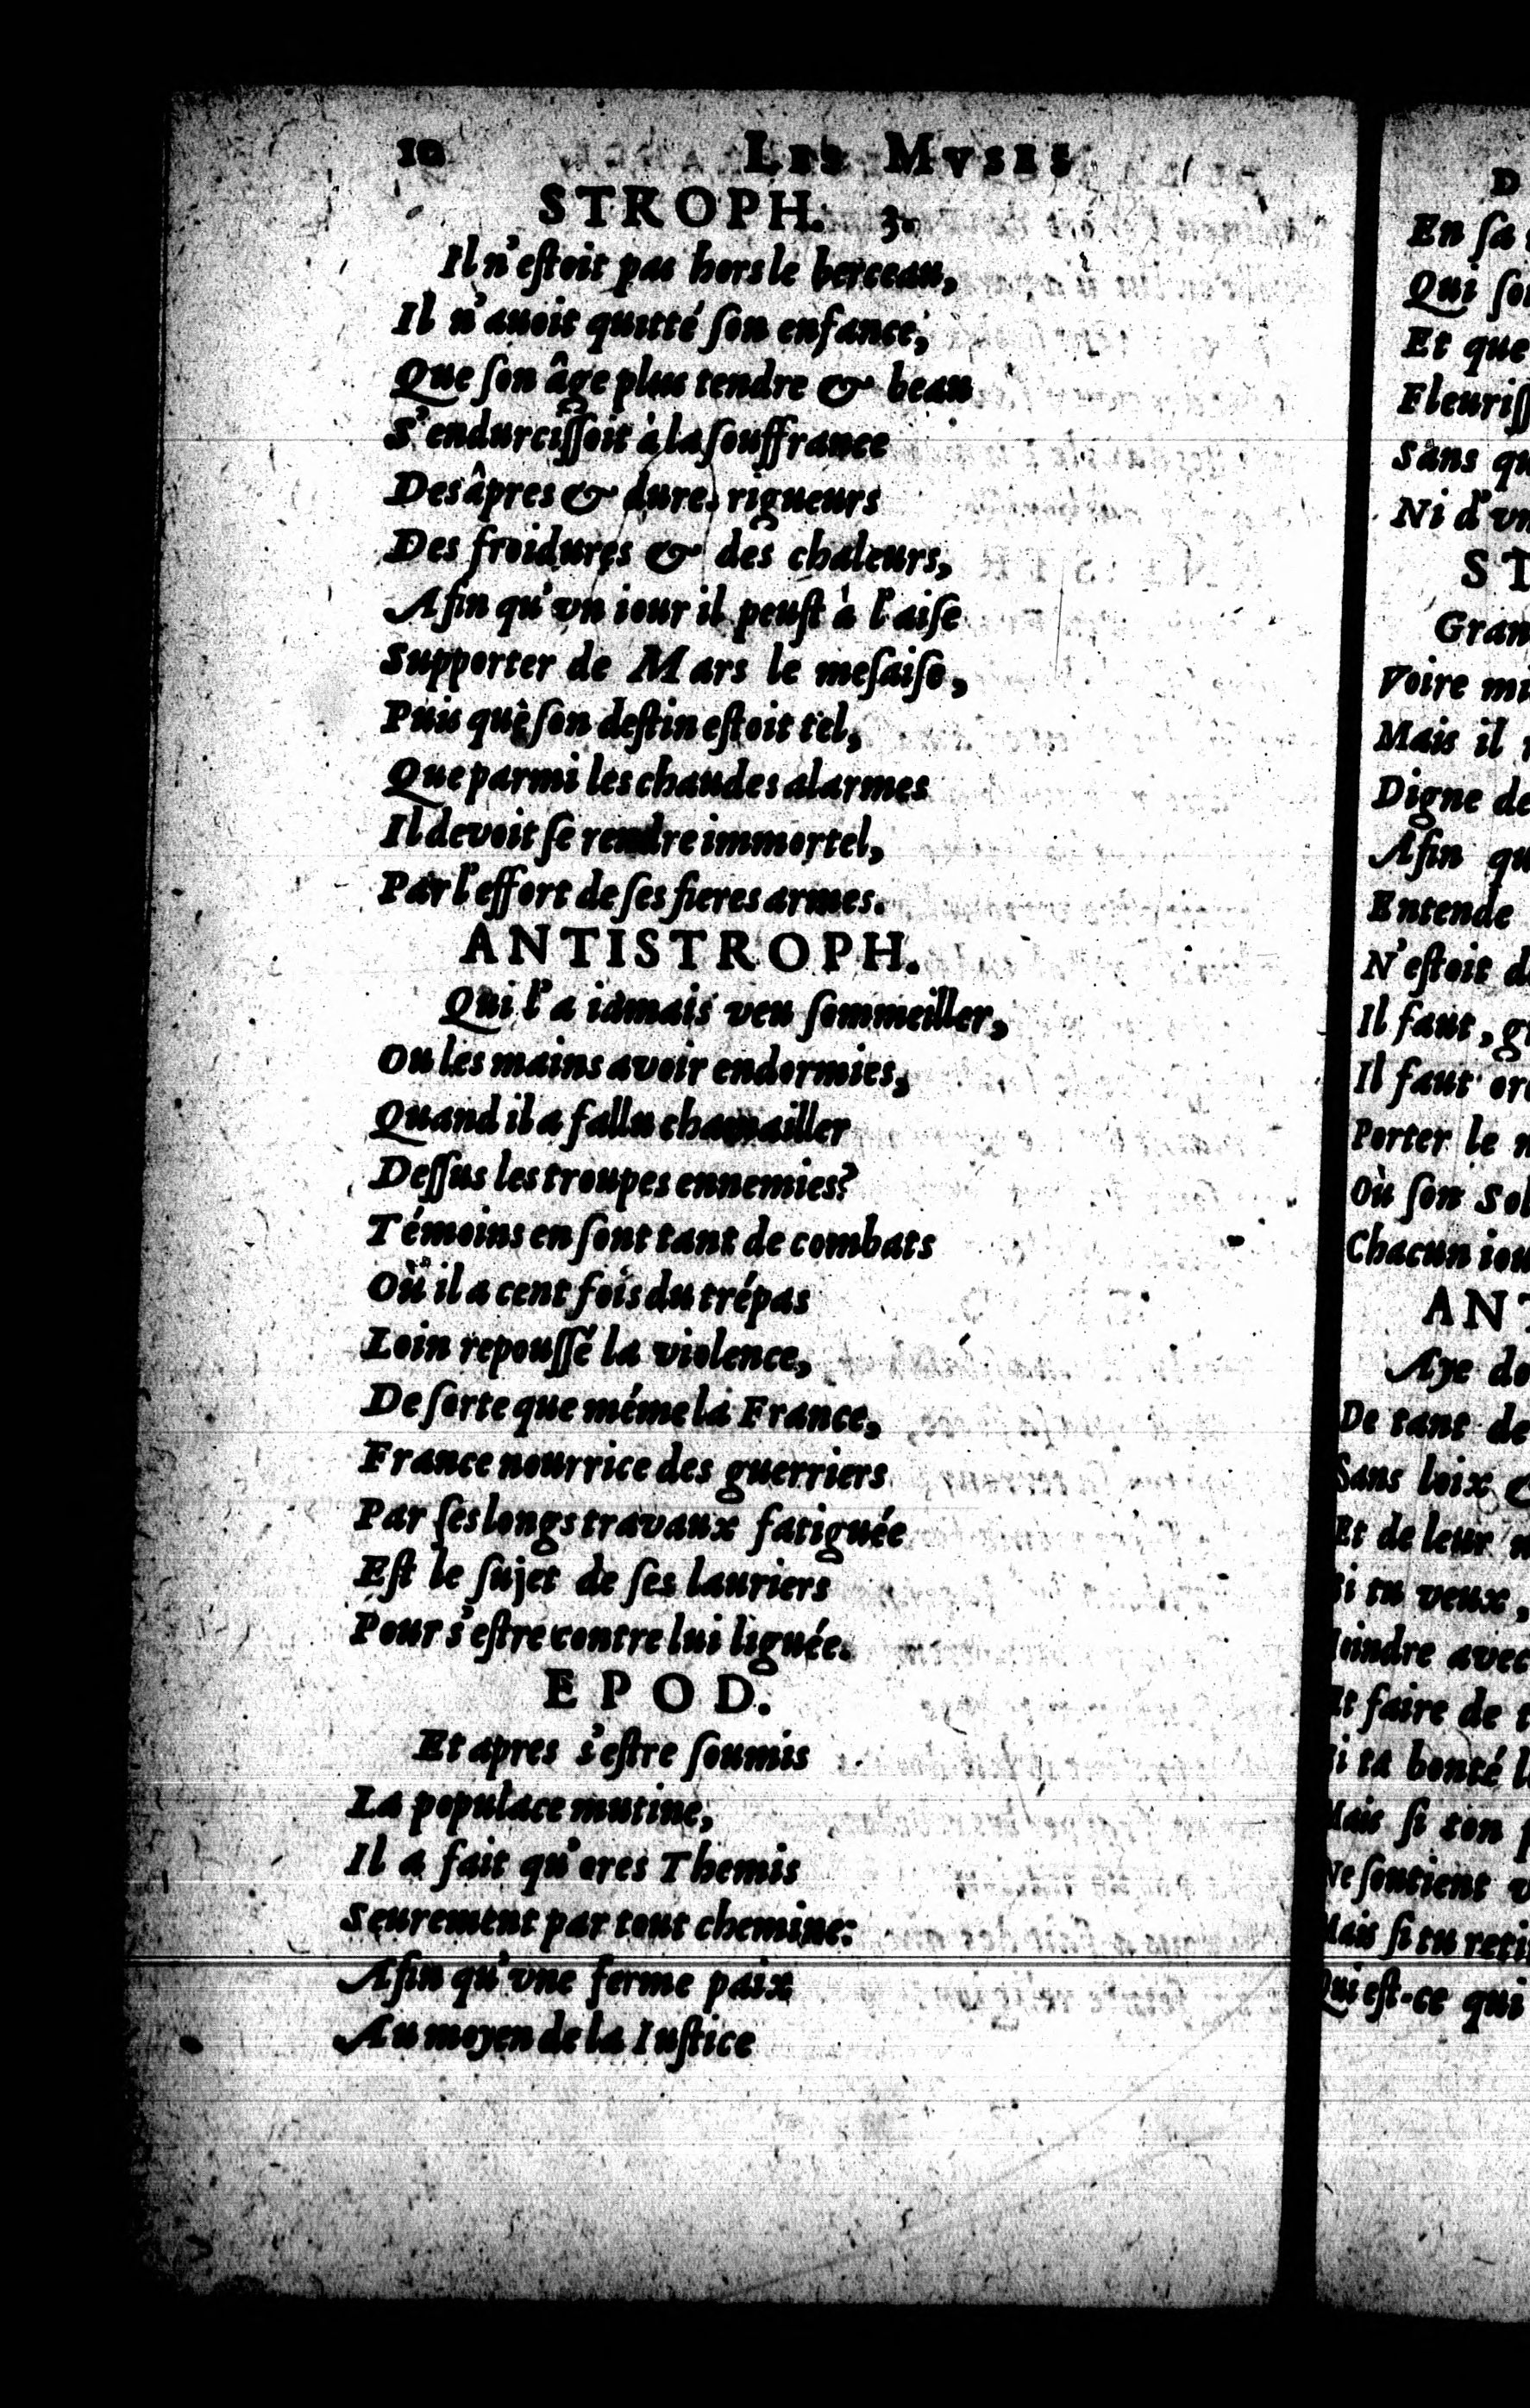 10 LES MVSES
STROPH. 3.
Il n'eſtoit pas hors le berceau,
Il n'auoit quitté ſon enfance,
Que ſon âge plus tendre & beau
S'endurciſſoit à la ſouffrance
Des âpres & dures rigueurs
Des froidures & des chaleurs,
Afin qu'vn iour il peuſt à l'aiſe
Supporter de Mars le meſaiſe,
Puis que ſon deſtin eſtoit tel,
Que parmi les chaudes alarmes
Il devoit ſe rendre immortel,
Par l'effort de ſes fieres armes.
ANTISTROPH.
Qui l'a iamais veu ſommeiller,
Ou les mains avoir endormies,
Quand il a fallu chamailler
Deſſus les troupes ennemies?
Témoins en ſont tant de combats
Où il a cent fois du trépas
Loin repouſſé la violence,
De ſorte que méme la France,
France nourrice des guerriers
Par ſes longs travaux fatiguée
Eſt le ſujet de ſes lauriers
Pour s'eſtre contre lui liguée.
EPOD.
Et apres s'eſtre ſoumis
La populace mutine,
Il a fait qu'ores Themis
Seurement par tout chemine:
Afin qu'vne ferme paix
Au moyen de la Iuſtice
D
En ſa
Qui
Et que
Sans
Ni d'vn
ST
Voire
Mais il
Digne de
Afin
Entende
N'eſtoit
Il faut,
Il faut
Porter le
Où ſon
Chacun
ANT
Aye
De tant de
Sans loix
Et de leur
Si tu veux,
avec
Et faire de
Si ta bonté
Mais ſi ton
Ne ſoutient
Mais ſi tu
Qui eſt-ce qui